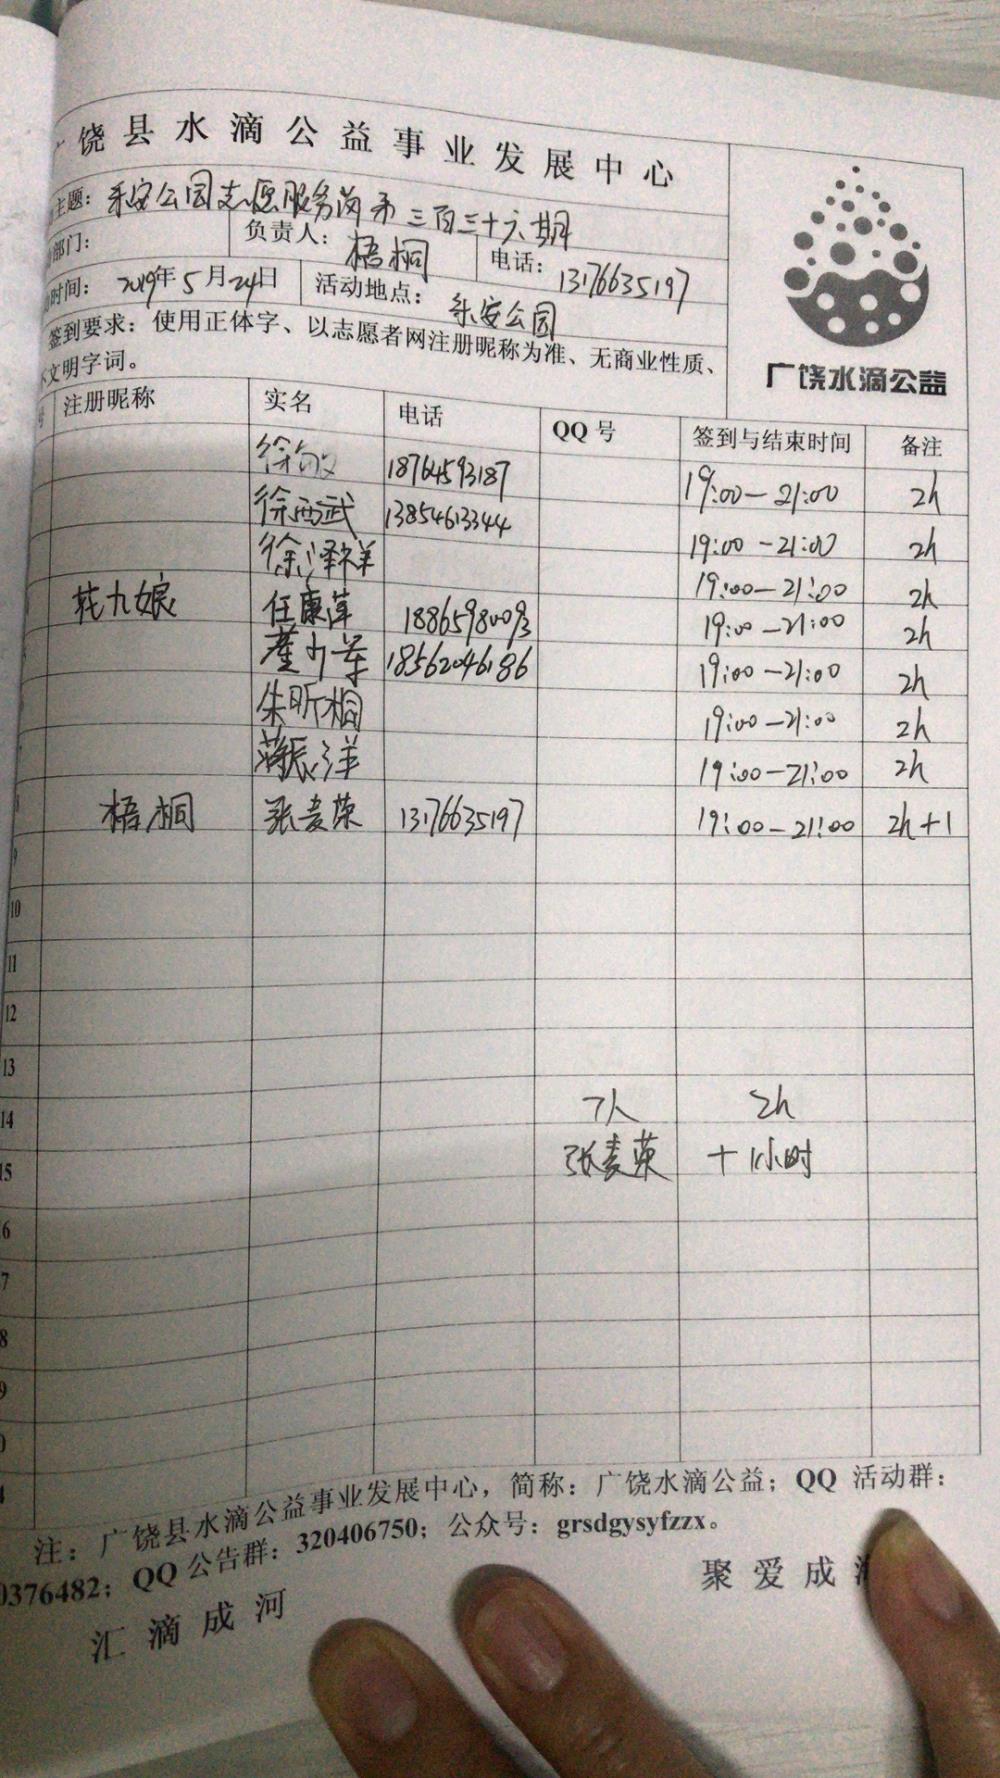 饶县水滴公益事业发展中心
主题：乐安公园志愿服务岗第三百三十六期
部门： 负责人：梧桐 电话：13176635197
时间：2019年5月24日 活动地点：乐安公园
签到要求：使用正体字、以志愿者网注册昵称为准、无商业性质、
文明字词。
广饶水滴公益
注册昵称 实名 电话 QQ号 签到与结束时间 备注
徐敏 18764593187 19:00-21:00 2h
徐西武 13854613344 19:00-21:00 2h
徐泽祥 19:00-21:00 2h
花九娘 任康萍 18865980093 19:00-21:00 2h
18562046186 19:00-21:00 2h
朱昕桐 19:00-21:00 2h
蒋振洋 19:00-21:00 2h
8 梧桐 张麦荣 13176635197 19:00-21:00 2h+1
9
10
11
12
13
14 7人 2h
15 张麦荣 +1小时
6
7
8
9
注：广饶县水滴公益事业发展中心，简称：广饶水滴公益；QQ 活动群：
0376482；QQ公告群：320406750；公众号：grsdgysyfzzx。
汇滴成河 聚爱成